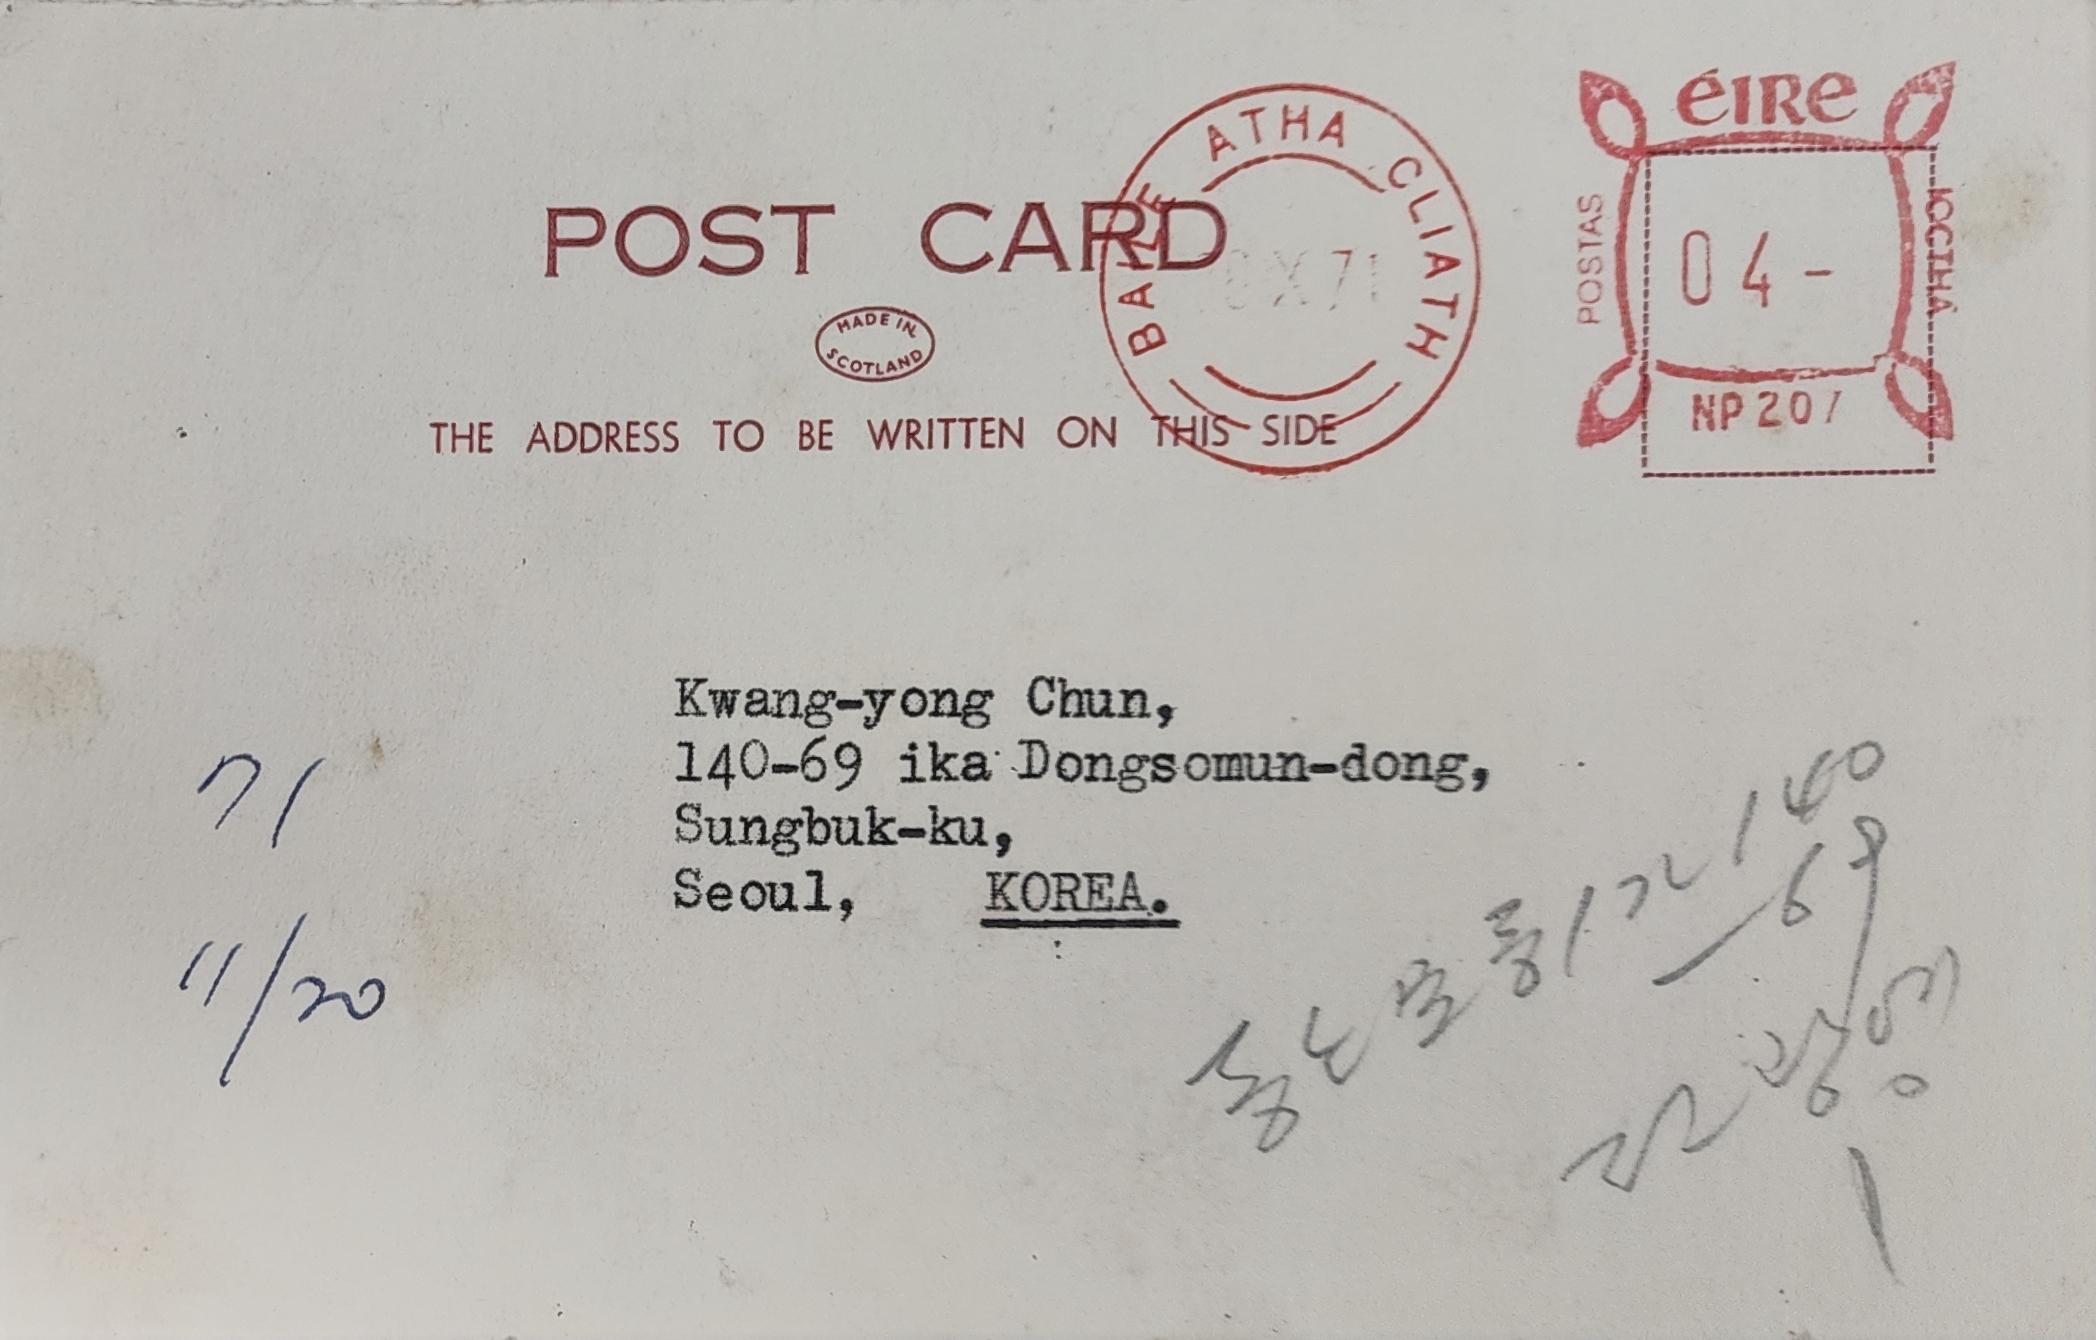 POST CARD
MADE IN
SCOTLAND
THE ADDRESS TO BE WRITTEN ON THIS SIDE
BAILE ATHA CLIATH
X 71
éire
POSTAS
ÍOCTHA
04-
NP 207
Kwang-yong Chun,
140-69 ika Dongsomun-dong,
Sungbuk-ku,
Seoul, KOREA.
71
11/20
동소문동 1가 140
69
전광용